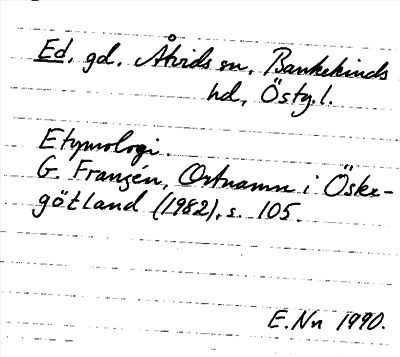 Ed, gd, Åtvids sn, Bankekinds
hd, Östg.l.
Etymologi.
G. Franzén, Ortnamn i Öster-
götland (1982), s. 105.
E.Nn 1990.